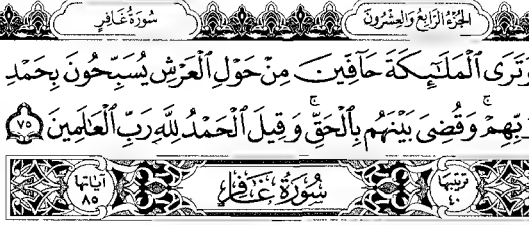 الجزء الرابع والعشرون
سورة غافر
وَتَرَى ٱلْمَلَٰٓئِكَةَ حَآفِّينَ مِنْ حَوْلِ ٱلْعَرْشِ يُسَبِّحُونَ بِحَمْدِ
رَبِّهِمْ ۚ وَقُضِىَ بَيْنَهُم بِٱلْحَقِّ ۚ وَقِيلَ ٱلْحَمْدُ لِلَّهِ رَبِّ ٱلْعَٰلَمِينَ ٧٥
ترتيبها ٤٠ سُورَةُ غَافِرٍ آياتها ٨٥